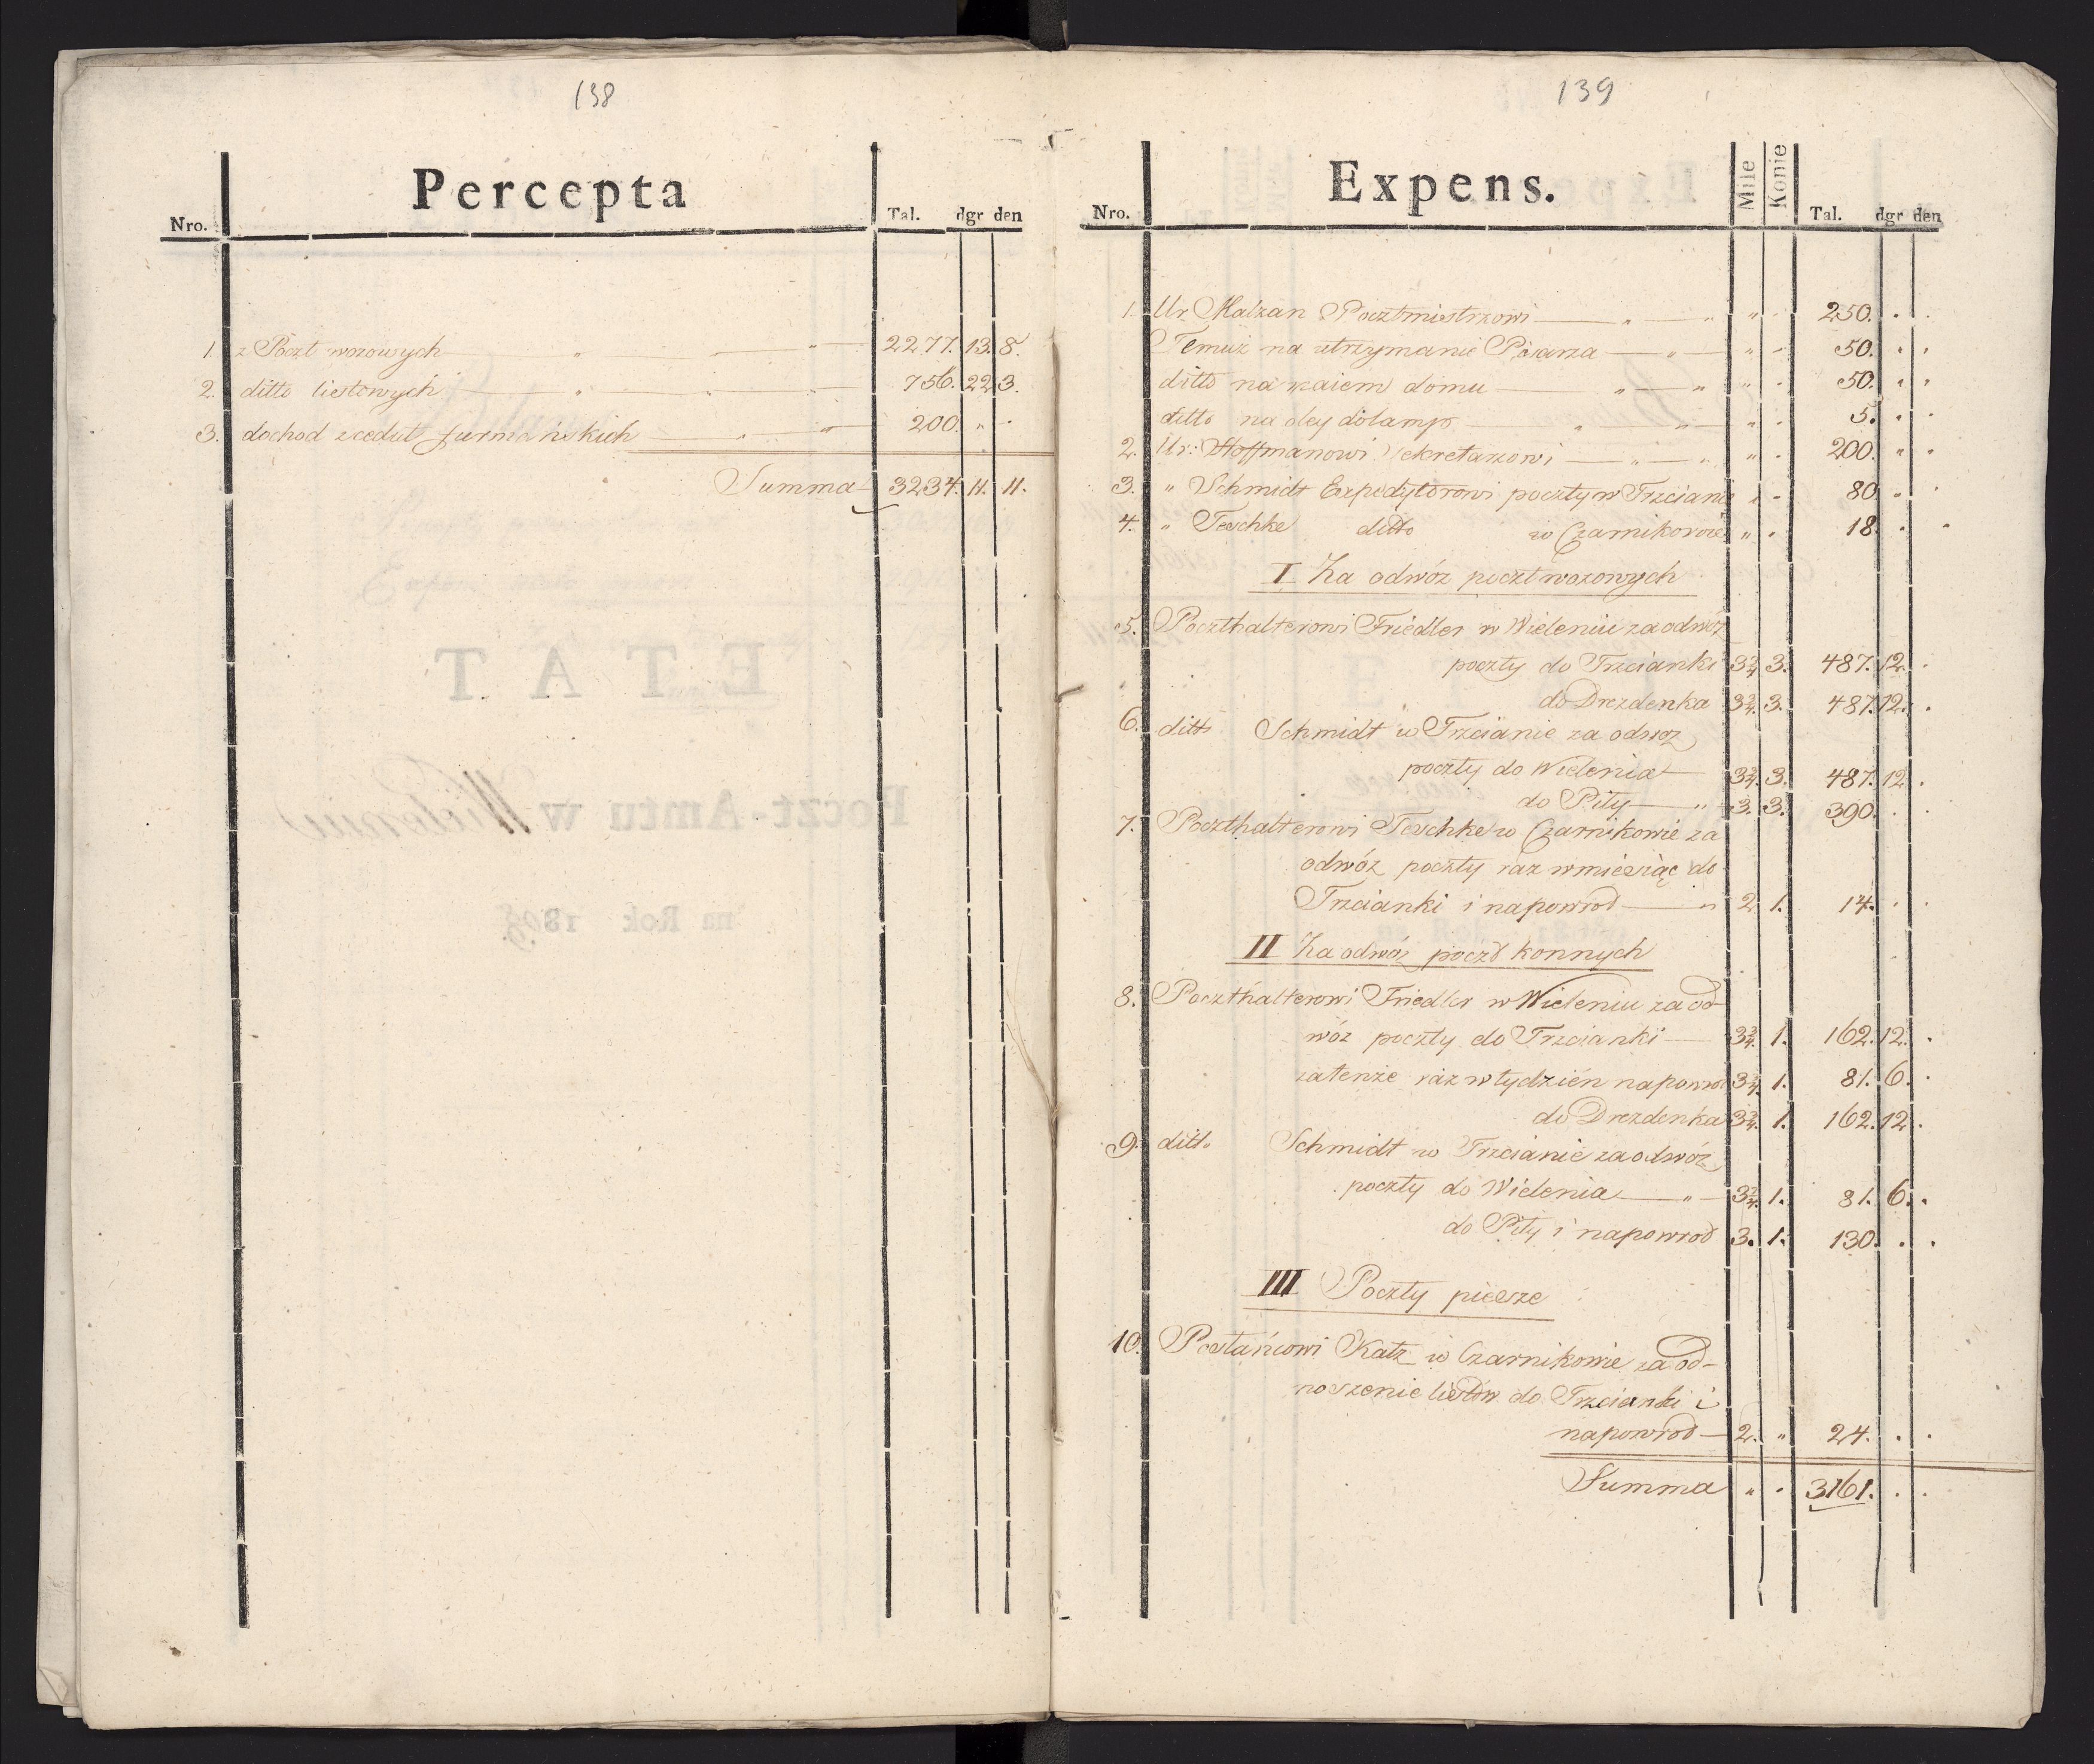 138
Percepta
Nro. Tal. dgr den
1. z Poczt wozowych 2277. 13. 8.
2. ditto listowych 756. 22. 3.
3. dochod z cedul furmańskich 200. " -
Summa 3234. 11. 11.
139
Expens.
Nro. Mile Konie Tal. dgr den
1. Ur. Malzan Pocztmistrzowi " - 250. . .
Temuż na utrzymanie Pisarza " - 50. . .
ditto na naiem domu " - 50. . .
ditto na oley do lamp " - 5. . .
2. Ur: Hoffmanowi Sekretarzowi " - 200. " .
3. " Schmidt Expedytorowi poczty w Trzcianie " - 80 . .
4. " Teschke ditto w Czarnikowie " . 18. . .
I Za odwóz poczt wozowych
5. Poczthalterowi Friedler w Wieleniu za odwóz
poczty do Trzcianki 3¾ 3. 487. 12. .
do Drezdenka 3¾. 3. 487. 12. .
6. ditto Schmidt w Trzcianie za odwoz
poczty do Wielenia 3¾. 3. 487. 12. .
do Piły " 3. 3. 390. . .
7. Poczthalterowi Teschke w Czarnikowie za
odwóz poczty raz w miesiąc do
Trzcianki i napowrod " 2 1. 14. . .
II Za odwóz poczt konnych
8. Poczthalterowi Friedler w Wieleniu za od
wóz poczty do Trzcianki 3¾. 1. 162. 12. .
zatenże raz w tydzień napowrod 3¾. 1. 81. 6. .
do Drezdenka 3¾. 1. 162. 12. .
9. ditto Schmidt w Trzcianie za odwóz
poczty do Wielenia " 3¾. 1. 81. 6. .
do Piły i napowrod 3. 1. 130. . .
III Poczty piesze
10. Posłańcowi Katz w Czarnikowie za od-
noszenie listów do Trzcianki i
napowrod 2. " 24. . .
Summa " - 3161. . .